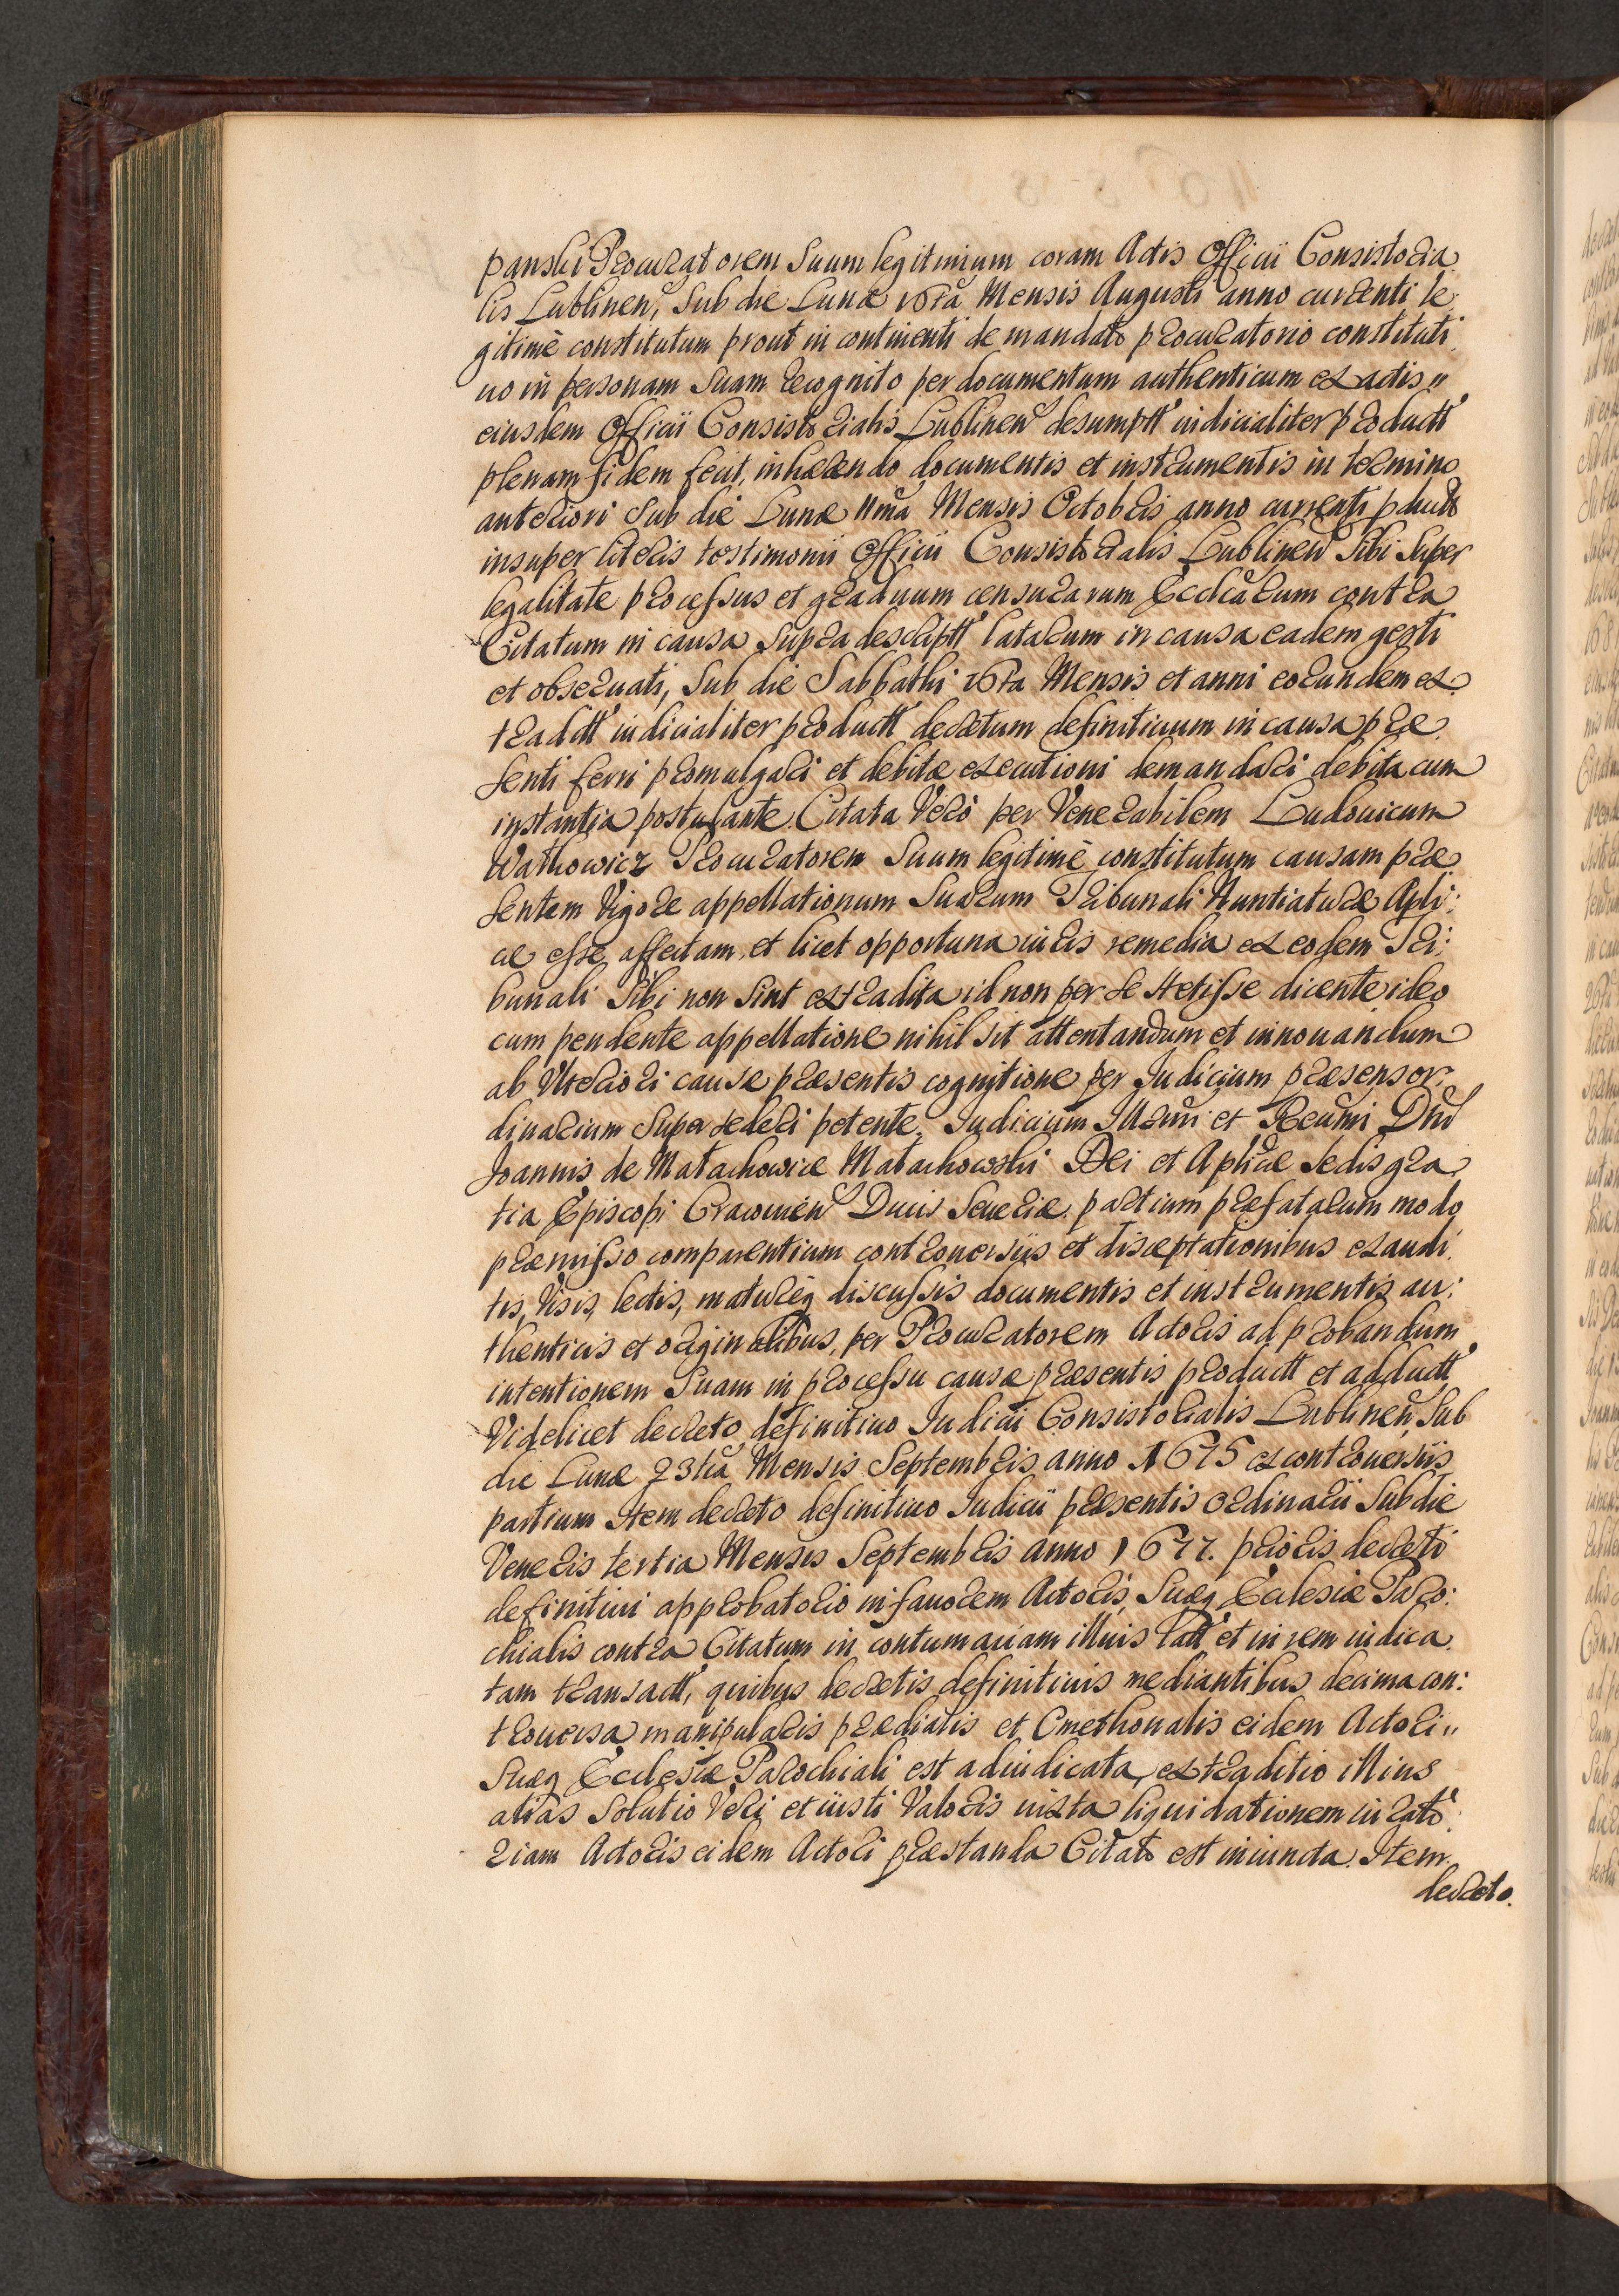 panski Procuratorem Suum legitimum coram Actis Officii Consistoria
lis Lublinen, Sub die Lunæ 16ta Mensis Augusti anno currenti le
gitimè constitutum prout in continenti de mandato procuratorio constituti
uo in personam Suam recognito per documentum authenticum ex actis "
eiusdem Officii Consistorialis Lublinen desumptt iudicialiter productt
plenam fidem fecit, inhærendo documentis et instrumentis in termino
anteriori Sub die Lunæ 11ma Mensis Octobris anno currenti pducto
insuper literis testimonii Officii Consistorialis Lublinen Sibi Super
legalitate processus et graduum censurarum Ecclcarum contra
Citatum in causa Supra descriptt latarum in causa eadem gesti
et obseruati, Sub die Sabbathi 16ta Mensis et anni eorundem ex
traditt iudicialiter productt decretum definitiuum in causa præ
senti ferri promulgari et debitæ executioni demandari debita cum
instantia postulante. Citata Verò per Venerabilem Ludouicum
Wathowicz Procuratorem Suum legitimè constitutum causam præ
sentem Vigore appellationum Suarum Tribunali Nuntiaturæ Apli:
cæ esse affectam, et licet opportuna iuris remedia ex eodem Tri:
bunali Sibi non Sint extradita id non per se stetisse dicente ideo
cum pendente appellatione nihil sit attentandum et innouandum
ab Vlteriori causæ præsentis cognitione per Iudicium præsens or
dinarium Supersederi petente. Iudicium Illrmi et Reumi Dni
Joannis de Małachowice Małachowski Dei et Aplicæ Sedis gra
tia Episcopi Cracouien Ducis Seueriæ. partium præfatarum modo
præmisso comparentium controuersiis et disceptationibus exaudi
tis, Visis, lectis, matureq discussis documentis et instrumentis au:
thenticis et originalibus, per Procuratorem Actoris ad probandum
intentionem Suam in processu causæ præsentis productt et adductt
Videlicet decreto definitiuo Iudicii Consistorialis Lublinen, Sub
die Lunæ 23tia Mensis Septembris anno 1675 ex controuersiis
partium Item decreto definitiuo Iudicii præsentis Ordinarii Sub die
Veneris tertia Mensis Septembris anno 1677. prioris decreti
definitiui approbatorio in fauorem Actoris, Suæq Ecclesiæ Paro:
chialis contra Citatum in contumaciam illius latt et in rem iudica
tam transactt, quibus decretis definitiuis mediantibus decima con:
trouersa manipularis prædialis et Cmethonalis eidem Actori "
Suæq Ecclesiæ Parochiali est adiudicata, extraditio illius
aliàs Solutio Veri et iusti Valoris iuxta liquidationem iurato
riam Actoris eidem Actori præstanda Citato est iniuncta. Item
decreto.